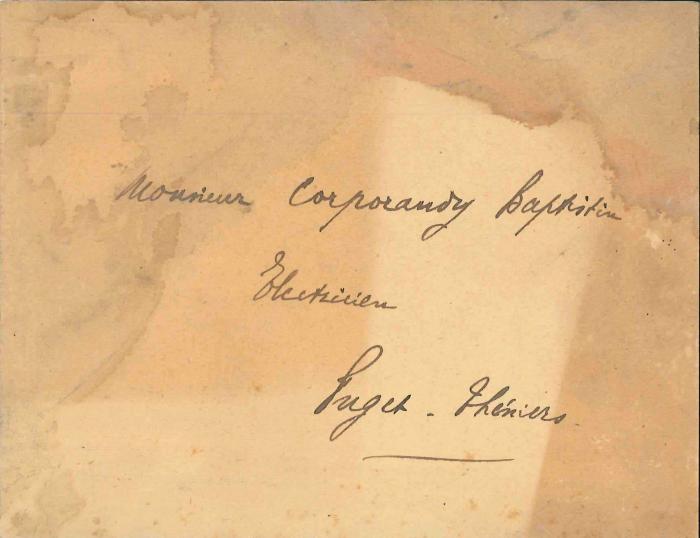 Monsieur Corporandy Baptistin
Electricien
Puget - Théniers